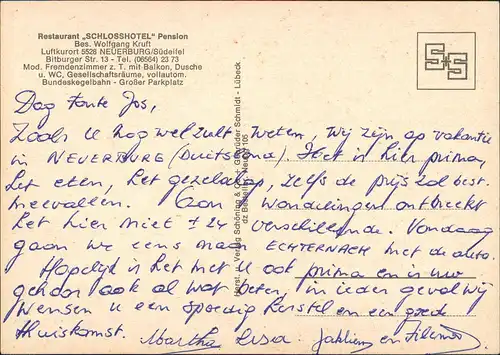 Restaurant „SCHLOSSHOTEL" Pension
Bes. Wolfgang Kruft
Luftkurort 5528 NEUERBURG/Südeifel
Bitburger Str. 13 - Tel. (06564) 23 73
Mod. Fremdenzimmer z. T. mit Balkon, Dusche
u. WC, Gesellschaftsräume, vollautom.
Bundeskegelbahn - Großer Parkplatz
Dag tante Jos,
Zoals u nog wel zult weten, wij zijn op vakantie
in NEUERBURG (Duitsland). Het is hier prima,
het eten, het gezelschap, zelfs de prijs zal best
meevallen. Aan wandelingen ontbreekt
het hier niet ± 24 verschillende. Vandaag
gaan we eens naar ECHTERNACH met de auto.
Hopelijk is het met u ook prima en is uw
gehoor ook al wat beter, in ieder geval wij
wensen u een spoedig herstel en een goede
thuiskomst. Martha Lisa. en
Horst u. Verlag Schöning & Co + Gebrüder Schmidt - Lübeck
SS